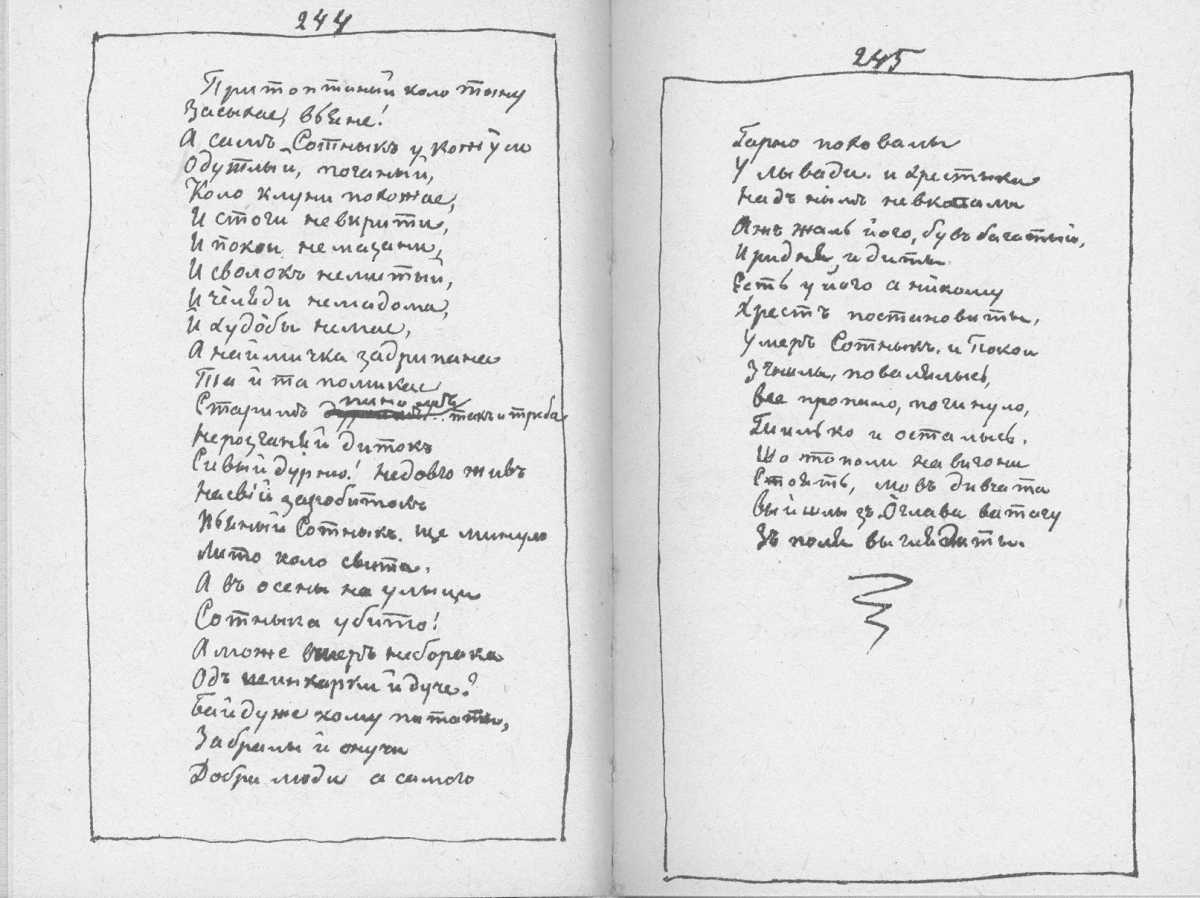 244
Притоптаний коло тыну
Засыхае, вьяне!
А самъ Сотныкъ у кожусі
Одутлый, поганый,
Коло клуни похожае,
И стоги невкрити,
И покои немазани,
И сволокъ немитый,
И челяди немадома,
Й худобы немае,
А наймичка задрипана
Та й та помикае
Старимъ пиномъ.. такъ и треба
Нерозганяй дитокъ
Сивый дурню! недовго живъ
На свій заробитокъ
Пьяный Сотныкъ. ще минуло
Лито коло свита.
А въ осены на улыци
Сотныка убыто!
А може вмеръ неборака
Одъ шинкарки йдучи?
Байдуже кому питаты,
Забралы й онучи
Добри люди а самого
245
Гарно поховалы
У лывади. и хрестыка
Надъ нымъ невкопалы
Ажъ жаль його, бувъ багатый,
И ридня, и диты
Есть у його а нікому
Хрестъ постановиты.
Умеръ Сотныкъ. и Покои
Згнылы, повалялысь,
все пропало, погинуло,
Тилько и осталысь.
Що тополи на вигони
Стоять, мовъ дивчата
Выйшлы зъ Оглава ватагу
Зъ поля выглядаты.